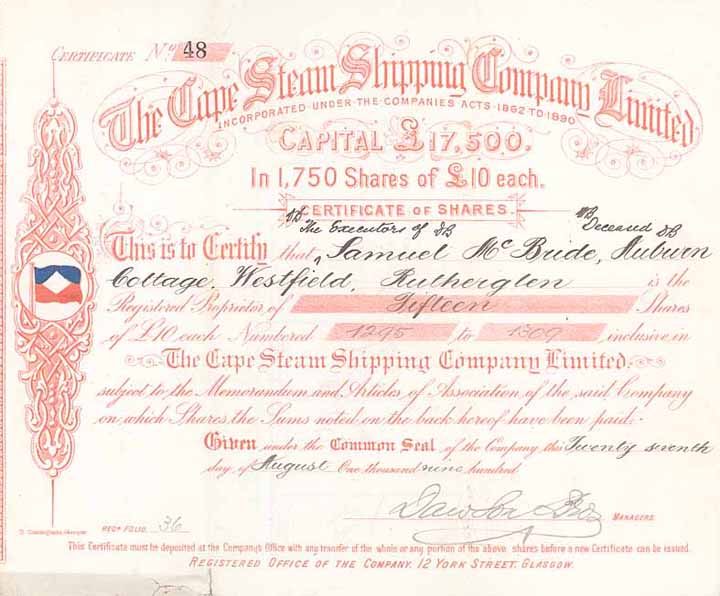 CERTIFICATE No. 48
The Cape Steam Shipping Company Limited
INCORPORATED UNDER THE COMPANIES ACTS 1862 TO 1890
CAPITAL £17,500.
In 1,750 Shares of £10 each.
CERTIFICATE OF SHARES.
The Executors of Deceased
This is to Certify that Samuel McBride, Auburn
Cottage, Westfield, Rutherglen is the
Registered Proprietor of Fifteen Shares
of £10 each Numbered 1295 to 1309 inclusive in
The Cape Steam Shipping Company Limited.
subject to the Memorandum and Articles of Association of the said Company
on which Shares the Sums noted on the back hereof have been paid.
Given under the Common Seal of the Company this Twenty seventh
day of August One thousand nine hundred
Dawson Bros MANAGERS.
REGR FOLIO. 36
This Certificate must be deposited at the Company's Office with any transfer of the whole or any portion of the above shares before a new Certificate can be issued.
REGISTERED OFFICE OF THE COMPANY, 12 YORK STREET, GLASGOW.